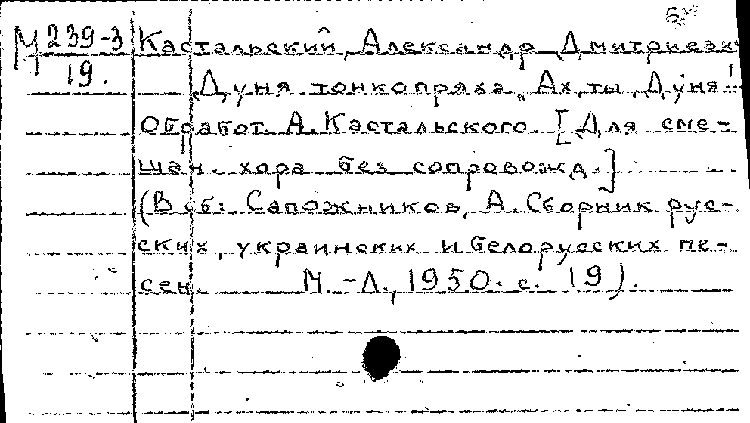 М 239-3
19.
Кастальский, Александр Дмитриевич
Дуня тонкопряха. „Ах, ты, Дуня!"
Обработ. А. Кастальского. [Для сме-
шан. хора без сопровожд.]
(В сб: Сапожников, А. Сборник рус-
ских, украинских и белорусских пе-
сен. М.-Л., 1950. с. 19).